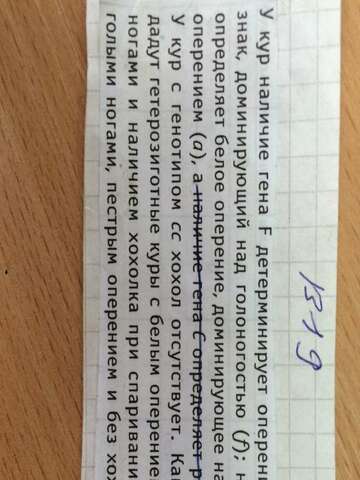 В19
У кур наличие гена F детерминирует оперени
знак, доминирующий над голоногостью (f); н
определяет белое оперение, доминирующее на
оперением (a), а наличие гена C определяет р
У кур с генотипом cc хохол отсутствует. Ка
дадут гетерозиготные куры с белым оперение
ногами и наличием хохолка при спаривани
голыми ногами, пестрым оперением и без хох